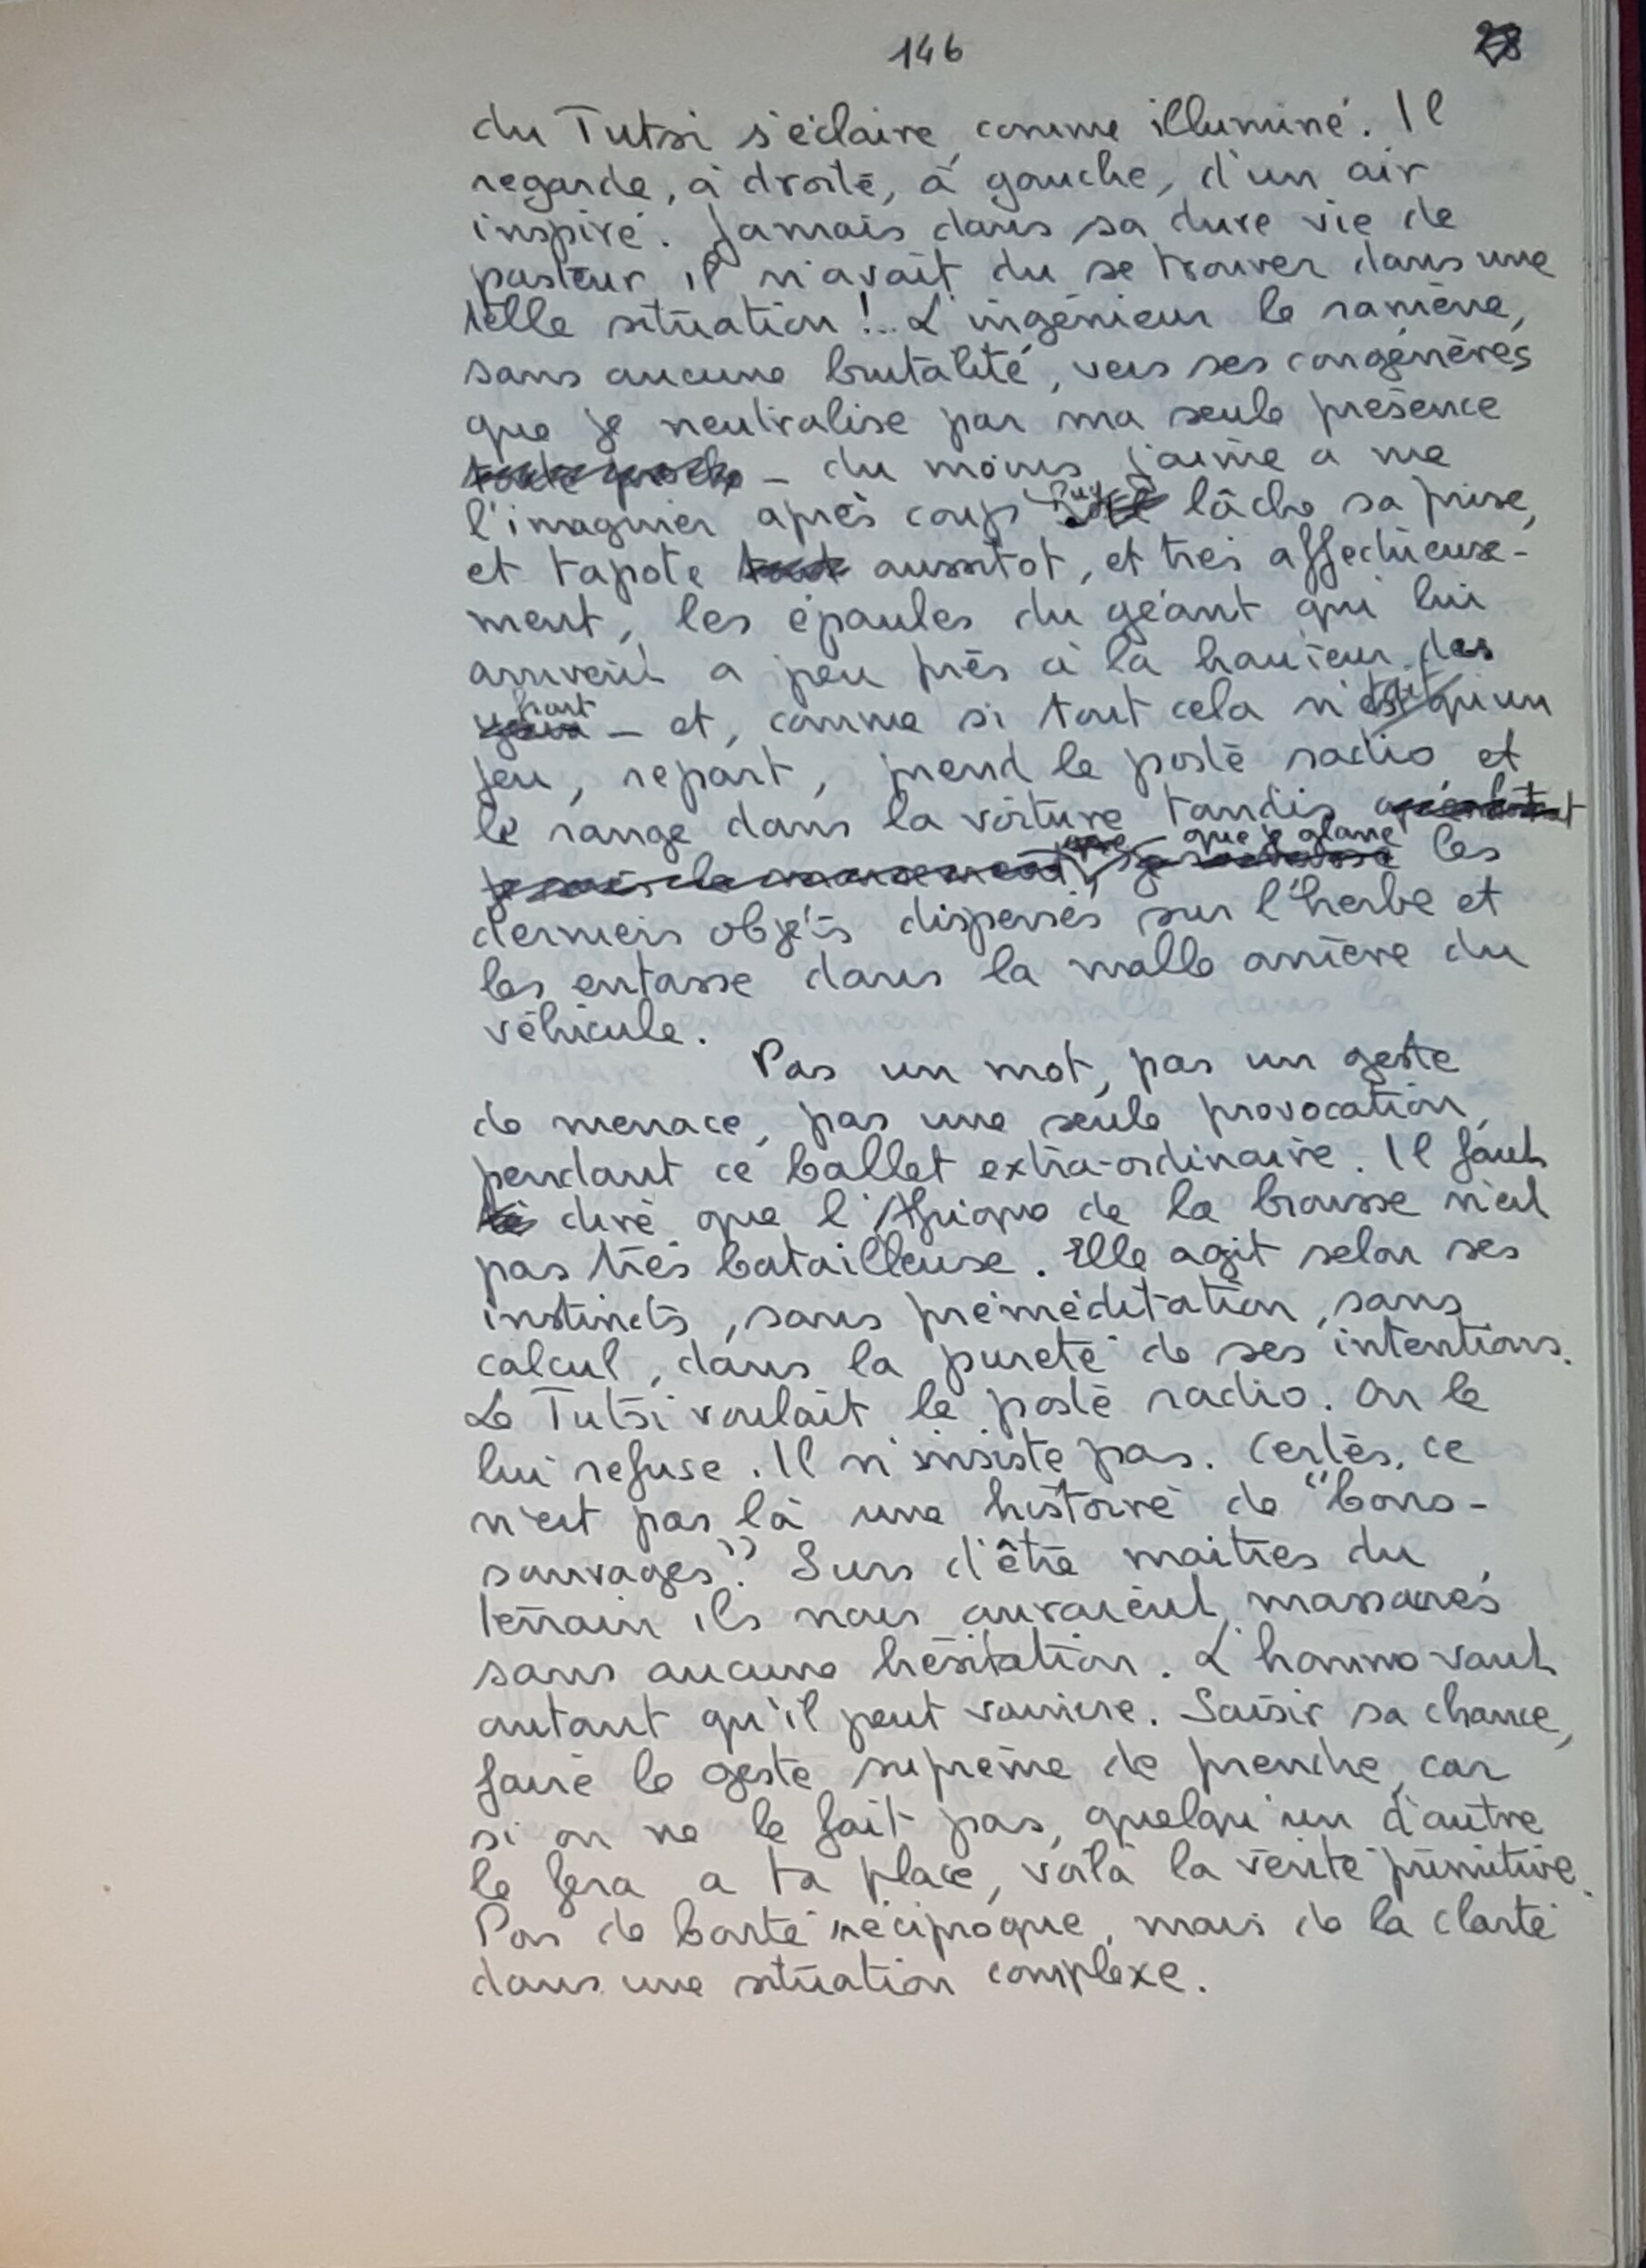 146
28
du Tutsi s'éclaire, comme illuminé. Il
regarde, à droite, à gauche, d'un air
inspiré. Jamais dans sa dure vie de
pasteur il n'avait du se trouver dans une
telle situation !.. L'ingénieur le ramène,
sans aucune brutalité, vers ses congénères
que je neutralise par ma seule présence
toute proche - du moins j'aime a me
l'imaginer après coup Puis lâche sa prise,
et tapote tout aussitot, et très affectueuse-
ment, les épaules du géant qui lui
arrivent a peu près à la hauteur des
front
yeux - et, comme si tout cela n'était qu'un
jeu, repart, prend le poste radio et
le range dans la voiture tandis
que je glane
je les
derniers objets dispersés sur l'herbe et
les entasse dans la malle arrière du
véhicule.
Pas un mot, pas un geste
de menace, pas une seule provocation,
pendant ce ballet extra-ordinaire. Il faut
dire que l'Afrique de la brousse n'est
pas très batailleuse. Elle agit selon ses
instincts, sans préméditation, sans
calcul, dans la pureté de ses intentions.
Le Tutsi voulait le poste radio. On le
lui refuse. Il n'insiste pas. Certes, ce
n'est pas là une histoire de "bons-
sauvages". Surs d'être maitres du
terrain ils nous auraient massacrés
sans aucune hésitation. L'homme vaut
autant qu'il peut vaincre. Saisir sa chance,
faire le geste suprême de prendre, car
si on ne le fait pas, quelqu'un d'autre
le fera a ta place, voilà la vérité primitive.
Pas de bonté réciproque, mais de la clarté
dans une situation complexe.